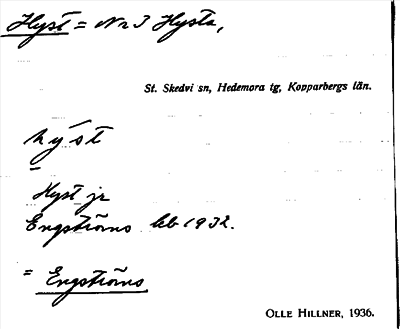 Hyst = Nr 3 Hysta,
St. Skedvi sn, Hedemora tg, Kopparbergs län.
hýst
=
Hyst jr
Engströms leb 1932.
= Engströms
OLLE HILLNER, 1936.